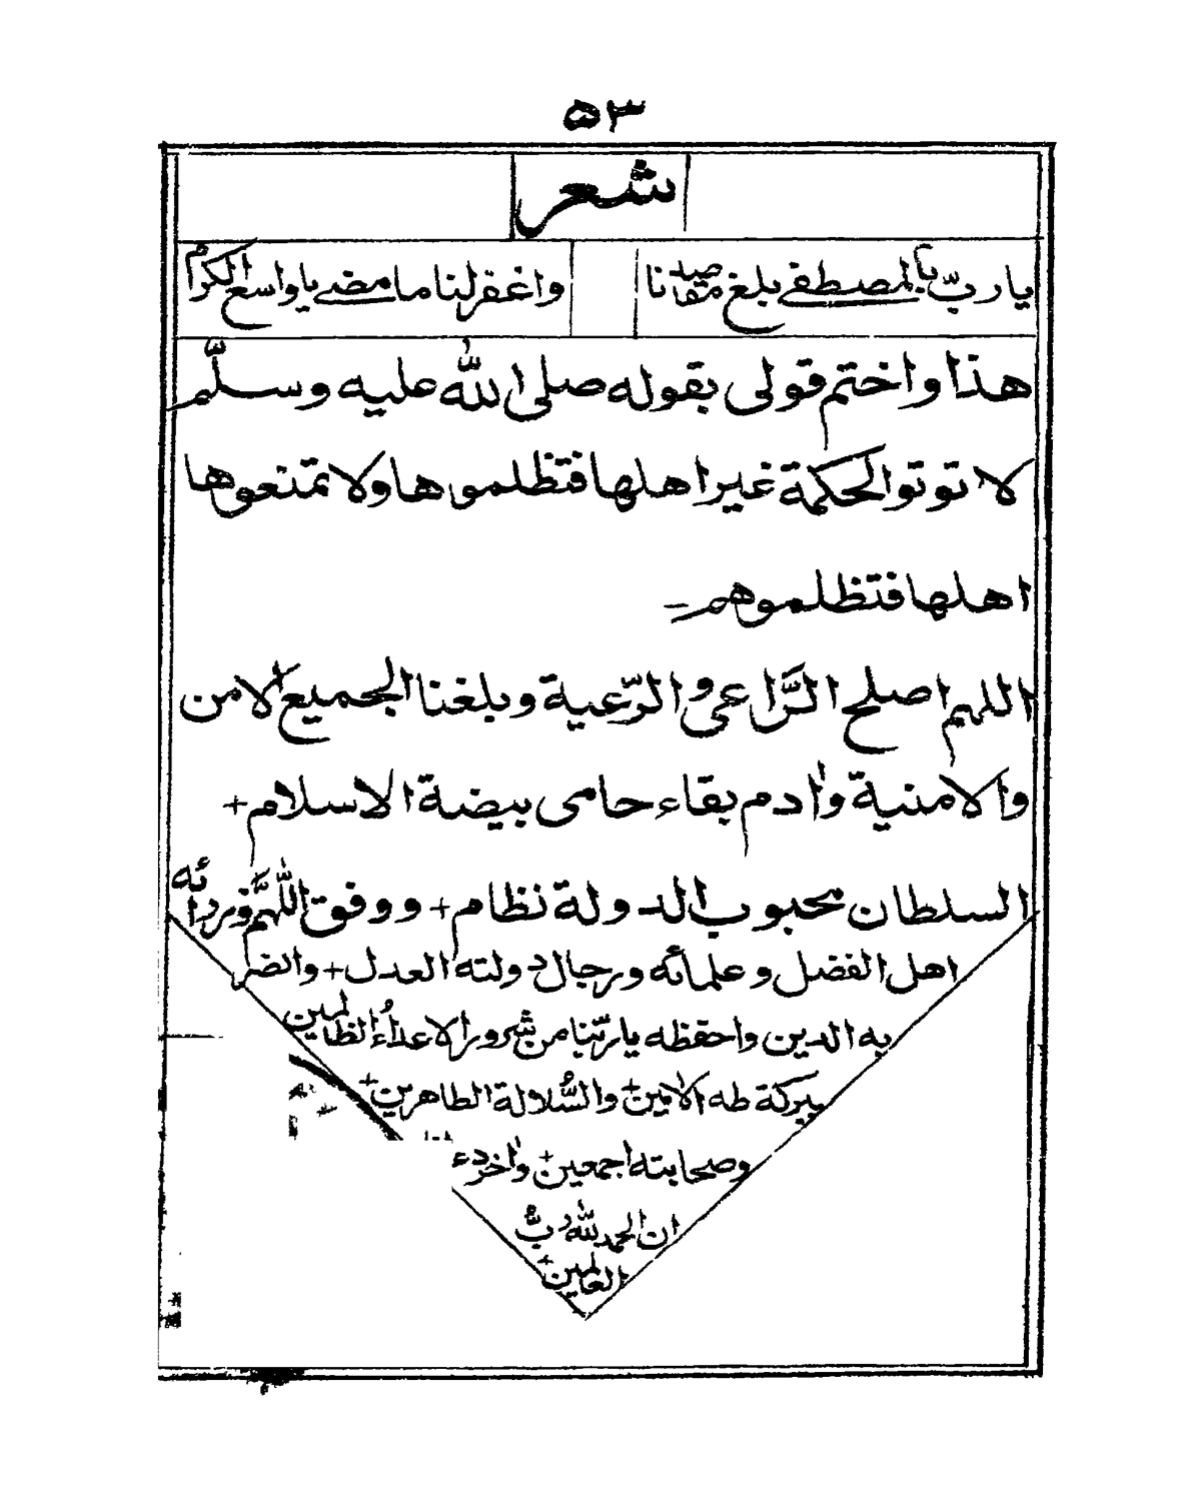 ۵۳
شعر
يا ربّ بالمصطفى بلغ مقاصدنا واغفر لنا ما مضى يا واسع الكرم
هذا واختم قولى بقوله صلى الله عليه وسلّم
لا توتوا الحكمة غير اهلها فتظلموها ولا تمنعوها
اهلها فتظلموهم ـ
اللهم اصلح الرَّاعى والرّعية وبلغنا الجميع الامن
والامنية وادم بقاء حامى بيضة الاسلام+
السلطان محبوب الدولة نظام+ ووفق اللّهمّ وزرائه
اهل الفضل وعلمائه ورجال دولته العدل+ وانصر
به الدين واحفظه يا ربّنا من شرور الاعداء الظالمين
ببركة طه الامين+ والسُّلالة الطاهرين+
وصحابته اجمعين+ واخر دعو
ان الحمد لله ربّ
العالمين+